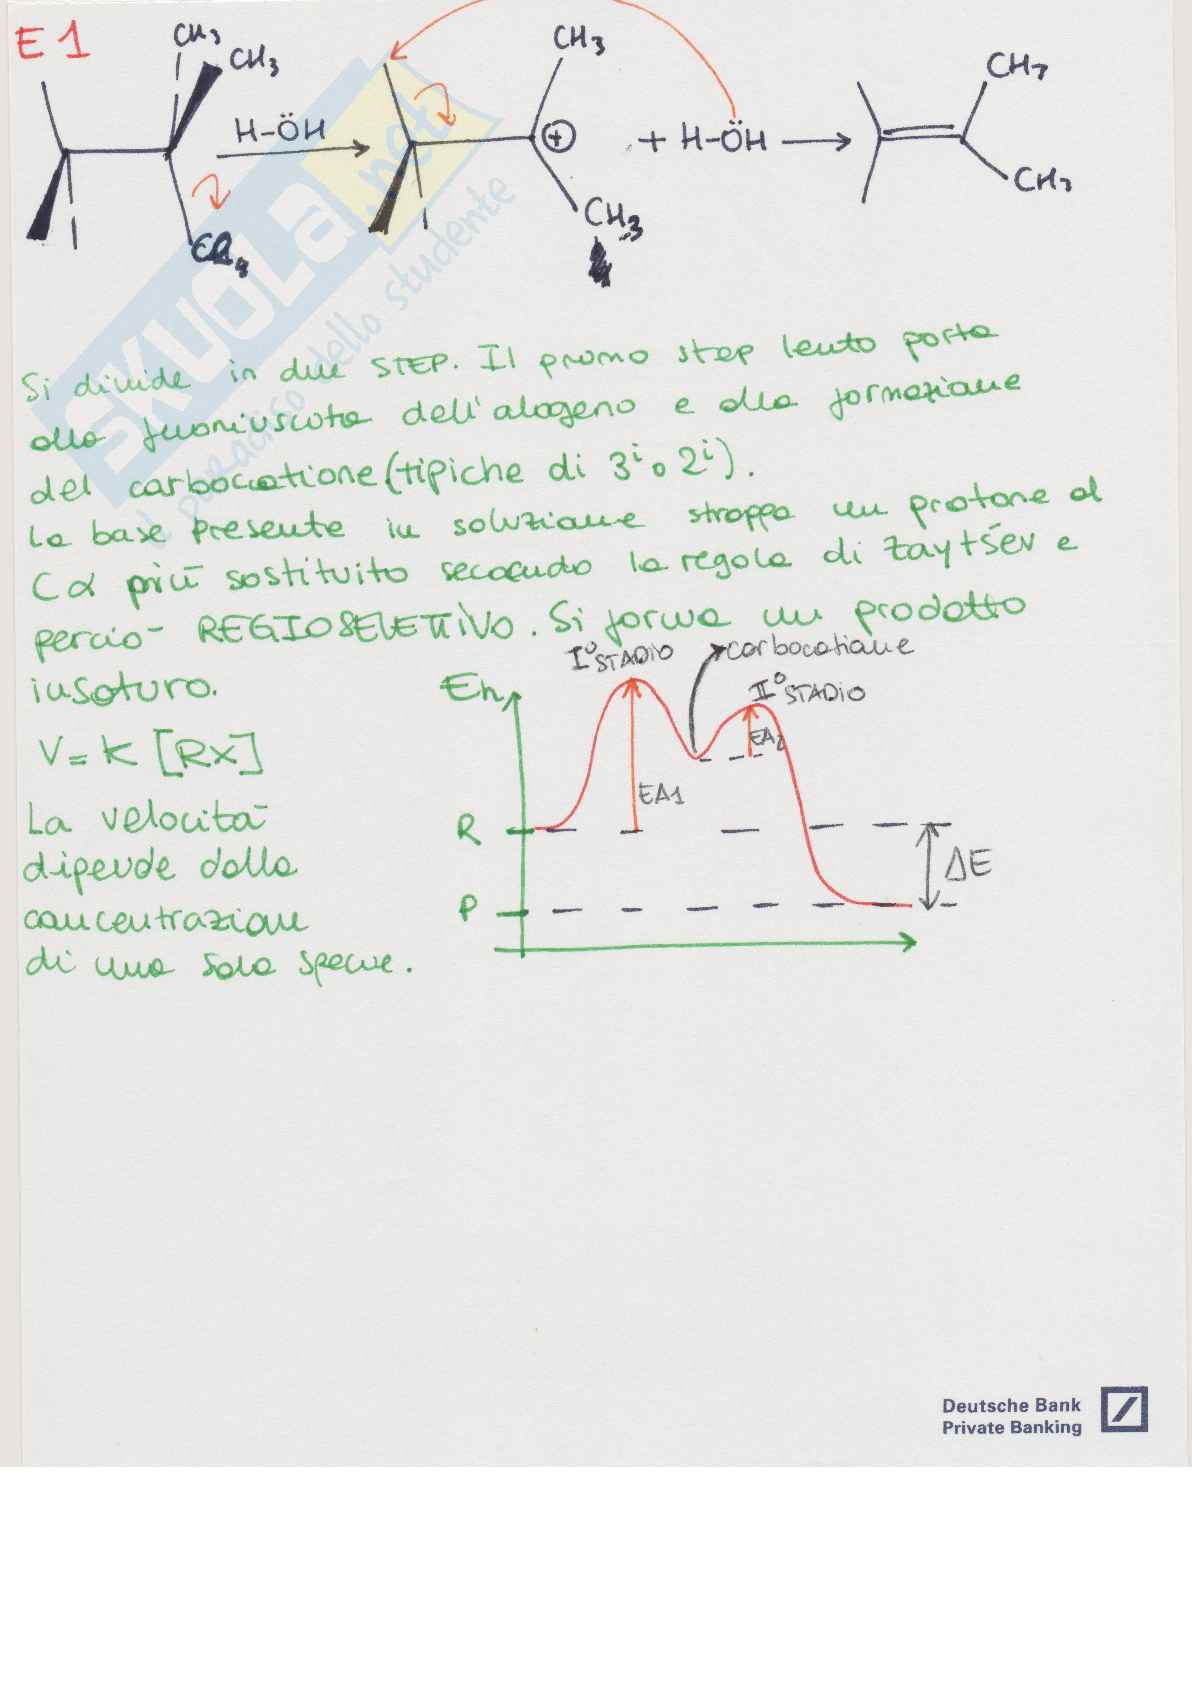 E1
CH3
CH3
H-ÖH
CH3
CH3
+ H-ÖH
CH3
CH3
SKUOLA.net
il paradiso dello studente
Si divide in due STEP. Il promo step lento porta
alla fuoriuscita dell'alogeno e alla formazione
del carbocatione (tipiche di 3i o 2i).
La base presente in soluzione strappa un protone al
Cα più sostituito secondo la regola di Zaytsev e
perciò REGIOSELETTIVO. Si forma un prodotto
insaturo.
I° STADIO
carbocatione
II° STADIO
En
EA2
EA1
V = K [RX]
La velocità
dipende dalla
concentrazione
di una sola specie.
R
P
ΔE
Deutsche Bank
Private Banking